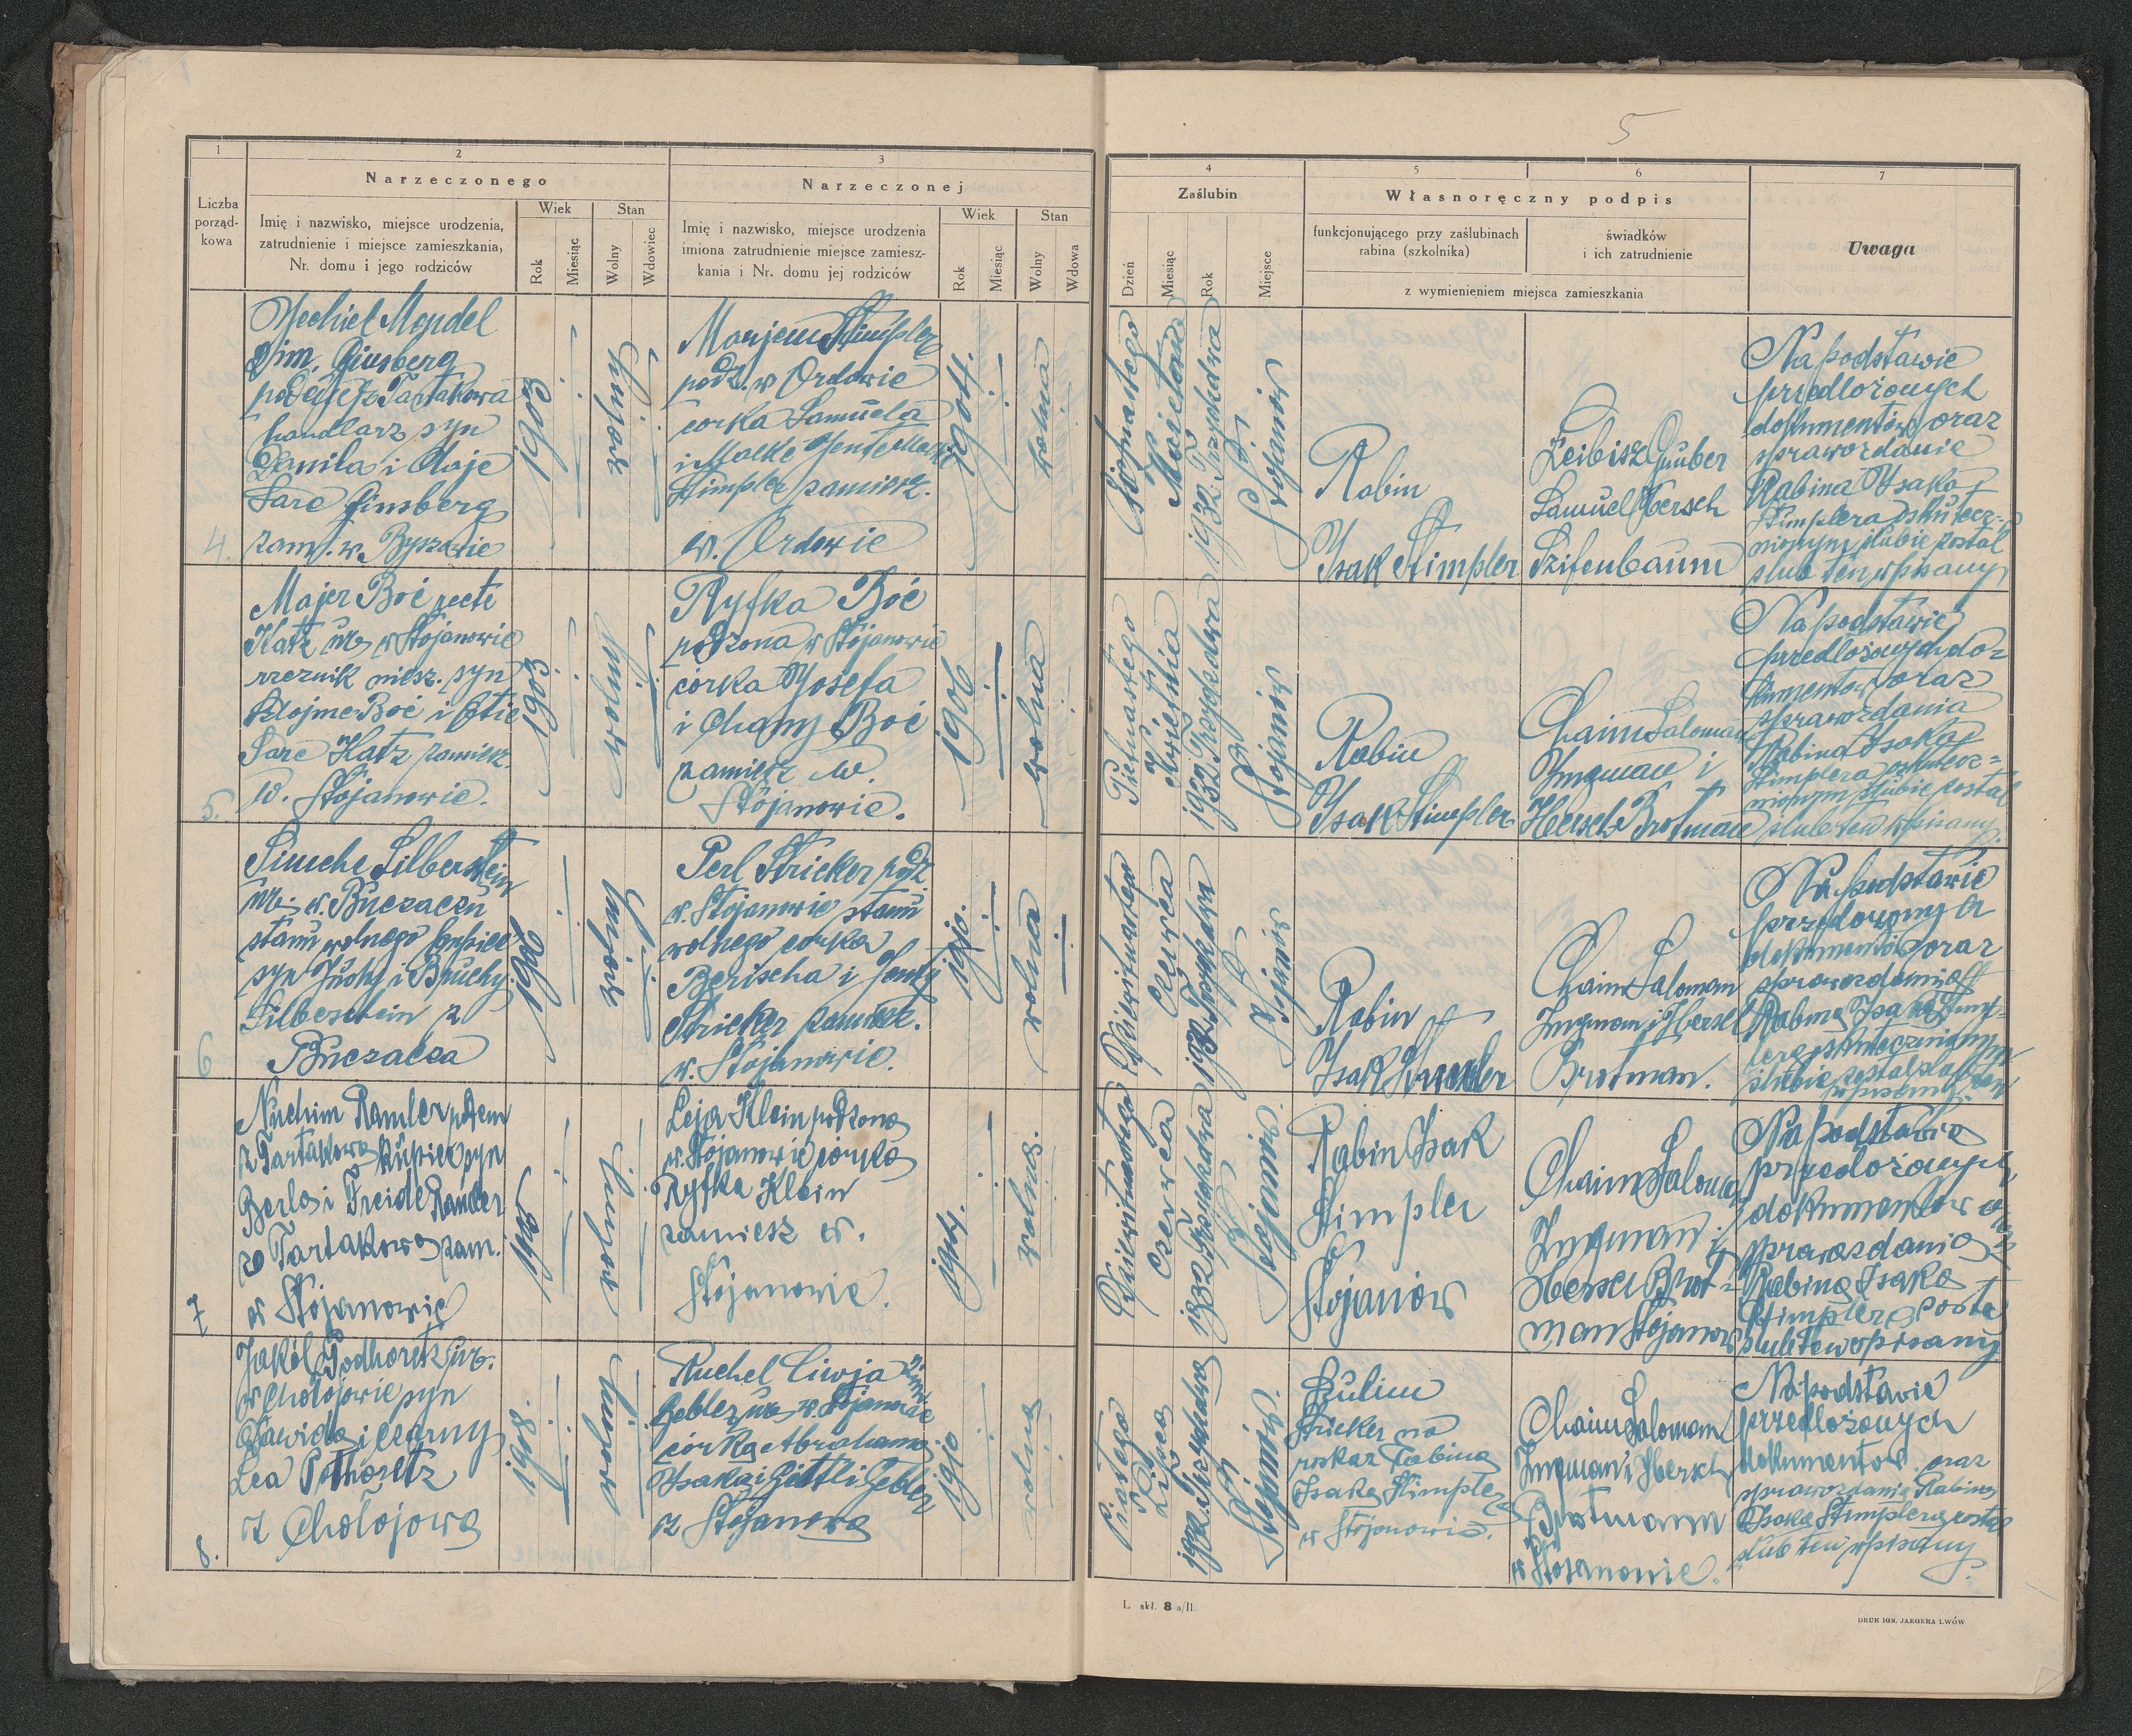 5
1
2
Narzeczonego
3
Narzeczonej
Liczba
porząd-
kowa
Imię i nazwisko, miejsce urodzenia,
zatrudnienie i miejsce zamieszkania,
Nr. domu i jego rodziców
Wiek
Stan
Rok
Miesiąc
Wolny
Wdowiec
Imię i nazwisko, miejsce urodzenia
imiona zatrudnienie miejsce zamiesz-
kania i Nr. domu jej rodziców
Wiek
Stan
Rok
Miesiąc
Wolny
Wdowa
4
Zaślubin
5
6
Własnoręczny podpis
7
Uwaga
Dzień
Miesiąc
Rok
Miejsce
funkcjonującego przy zaślubinach
rabina (szkolnika)
świadków
i ich zatrudnienie
z wymienieniem miejsca zamieszkania
4.
Mechiel Mendel
2 im. Ginsberg
z Tartakowa
handlarz syn
Danila i Chaje
Sare Ginsberg
zam. w.
1903
Marjem Stimpler
rodz. w Ordowie
corka Samuela
i Malke
Stimpler zamiesz.
w. Ordowie
1904.
wolna
1932
Stojanów
Rabin
Isak Stimpler
Leibisz Gruber
Samuel Hersch
Szifenbaum
Na podstawie
przedlożonych
dokumentów oraz
sprawozdanie
Rabina Isaka
Stimplera uskutecz-
nionym ślubie został
ślub ten wpisany
5.
Majer Boć recte
Katz ur. w Stojanowie
rzeznik miesz. syn
Szlojme Boć i Etie
Sare Katz zamiesz.
w. Stojanowie.
1903
Ryfka Boć
rodzona w Stojanowie
córka Josefa
i Chany Boć
zamiesz w.
Stojanowie.
1906
wolna
Piętnastego
Kwietnia
1932
Stojanów
Rabin
Isak Stimpler
Chaim Saloman
Ingman i
Hersch Brotman
Na podstawie
przedlożonych do-
kumentów oraz
sprawozdania
Rabina Isaka
Stimplera uskutecz-
nionym ślubie został
ślub ten wpisany.
6
Simche Silberstein
ur. w. Buczaczu
stanu wolnego kupiec
syn i Bruchy
Silberstein z
Buczacza
1906
Perl Stricker rodz.
w. Stojanowie stanu
wolnego corka
Berischa i
Stricker zamiesz.
w. Stojanowie.
1910.
wolna
Dziewiętnastego
Czerwca
1932
Stojanów
Rabin
Isak Stimpler
Chaim Saloman
Ingman i Hersch
Brotman.
Na podstawie
przedlożonych
dokumentów oraz
sprawozdania
Rabina Isaka Stimp-
lera uskutecznionym
ślubie został ślub ten
wpisany.
7
Nuchim Ramler rodem
z Tartakowa kupiec syn
Berla i Freide Ramler
z Tartakowa zam.
w Stojanowie
1905
Leja Klein rodzona
w. Stojanowie córka
Ryfka Klein
zamiesz w.
Stojanowie.
wolna.
Dziewiętnastego
Czerwca
1932
Stojanów.
Rabin Isak
Stimpler
Stojanów
Chaim Saloman
Ingman i
Hersch Brot-
man Stojanów
Na podstawie
przedlożonych
dokumentów oraz
sprawozdania
Rabina Isaka
Stimplera został
ślub ten wpisany
8.
Jakól Podhoretz ur.
w Chołojowie syn
Dawida i Czarny
Lea Pothoretz
z Chołojowa
1908.
Ruchel Ciwja 2 im.
Gebler ur. w. Stojanowie
córka Abrahama
Isaka i Gittli Gebler
z Stojanowa
1910
wolna
Piątego
Lipca
1932
Stojanów.
Szulim
Stricker na
rozkaz Rabina
Isaka Stimplera
w Stojanowie.
Chaim Saloman
Ingman i Hersch
Brotmann
w Stojanowie.
Na podstawie
przedlożonych
dokumentów oraz
sprawozdania Rabina
Isaka Stimplera został
ślub ten wpisany.
L. skł. 8 a/II.
DRUK IGN. JAEGERA LWÓW